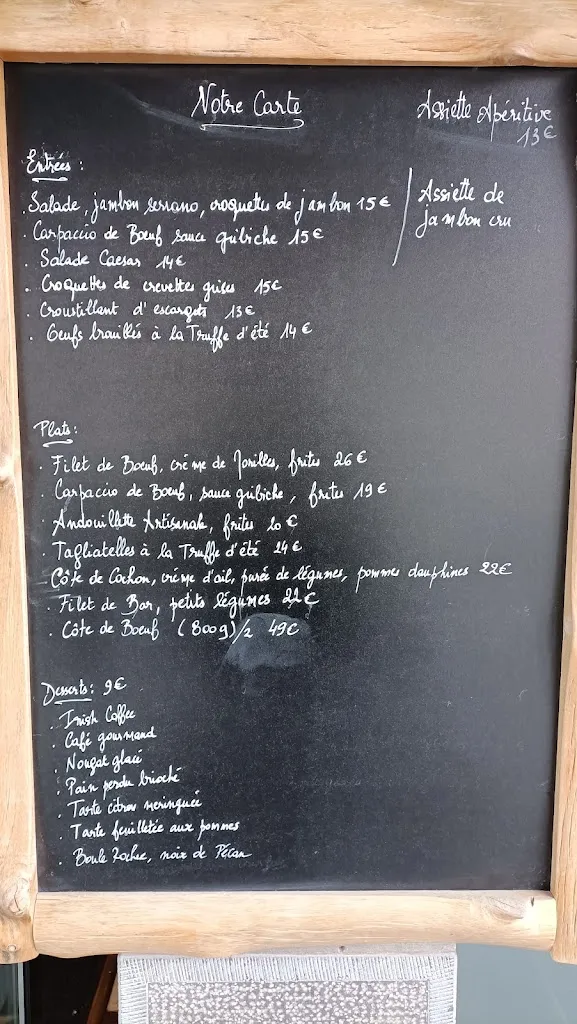 Notre Carte
Assiette Apéritive
13€
Assiette de
jambon cru
Entrées :
. Salade, jambon serrano, croquettes de jambon 15€
. Carpaccio de Bœuf sauce gribiche 15€
. Salade Caesar 14€
. Croquettes de crevettes grises 15€
. Croustillant d'escargots 13€
. Oeufs brouillés à la Truffe d'été 14€
Plats:
. Filet de Boeuf, crème de Morilles, frites 26€
. Carpaccio de Boeuf, sauce gribiche, frites 19€
. Andouillette Artisanale, frites 20€
. Tagliatelles à la Truffe d'été 24€
. Côte de Cochon, crème d'ail, purée de légumes, pommes dauphines 22€
. Filet de Bar, petits légumes 22€
. Côte de Boeuf (800g)/2 49€
Desserts: 9€
. Irish Coffee
. Café gourmand
. Nougat glacé
. Pain perdu brioché
. Tarte citron meringuée
. Tarte feuilletée aux pommes
. Boule Rocher, noix de Pécan